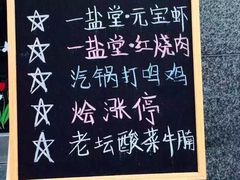 一盐堂·元宝虾
一盐堂·红烧肉
汽锅打鸣鸡
烩涨停
老坛酸菜牛腩